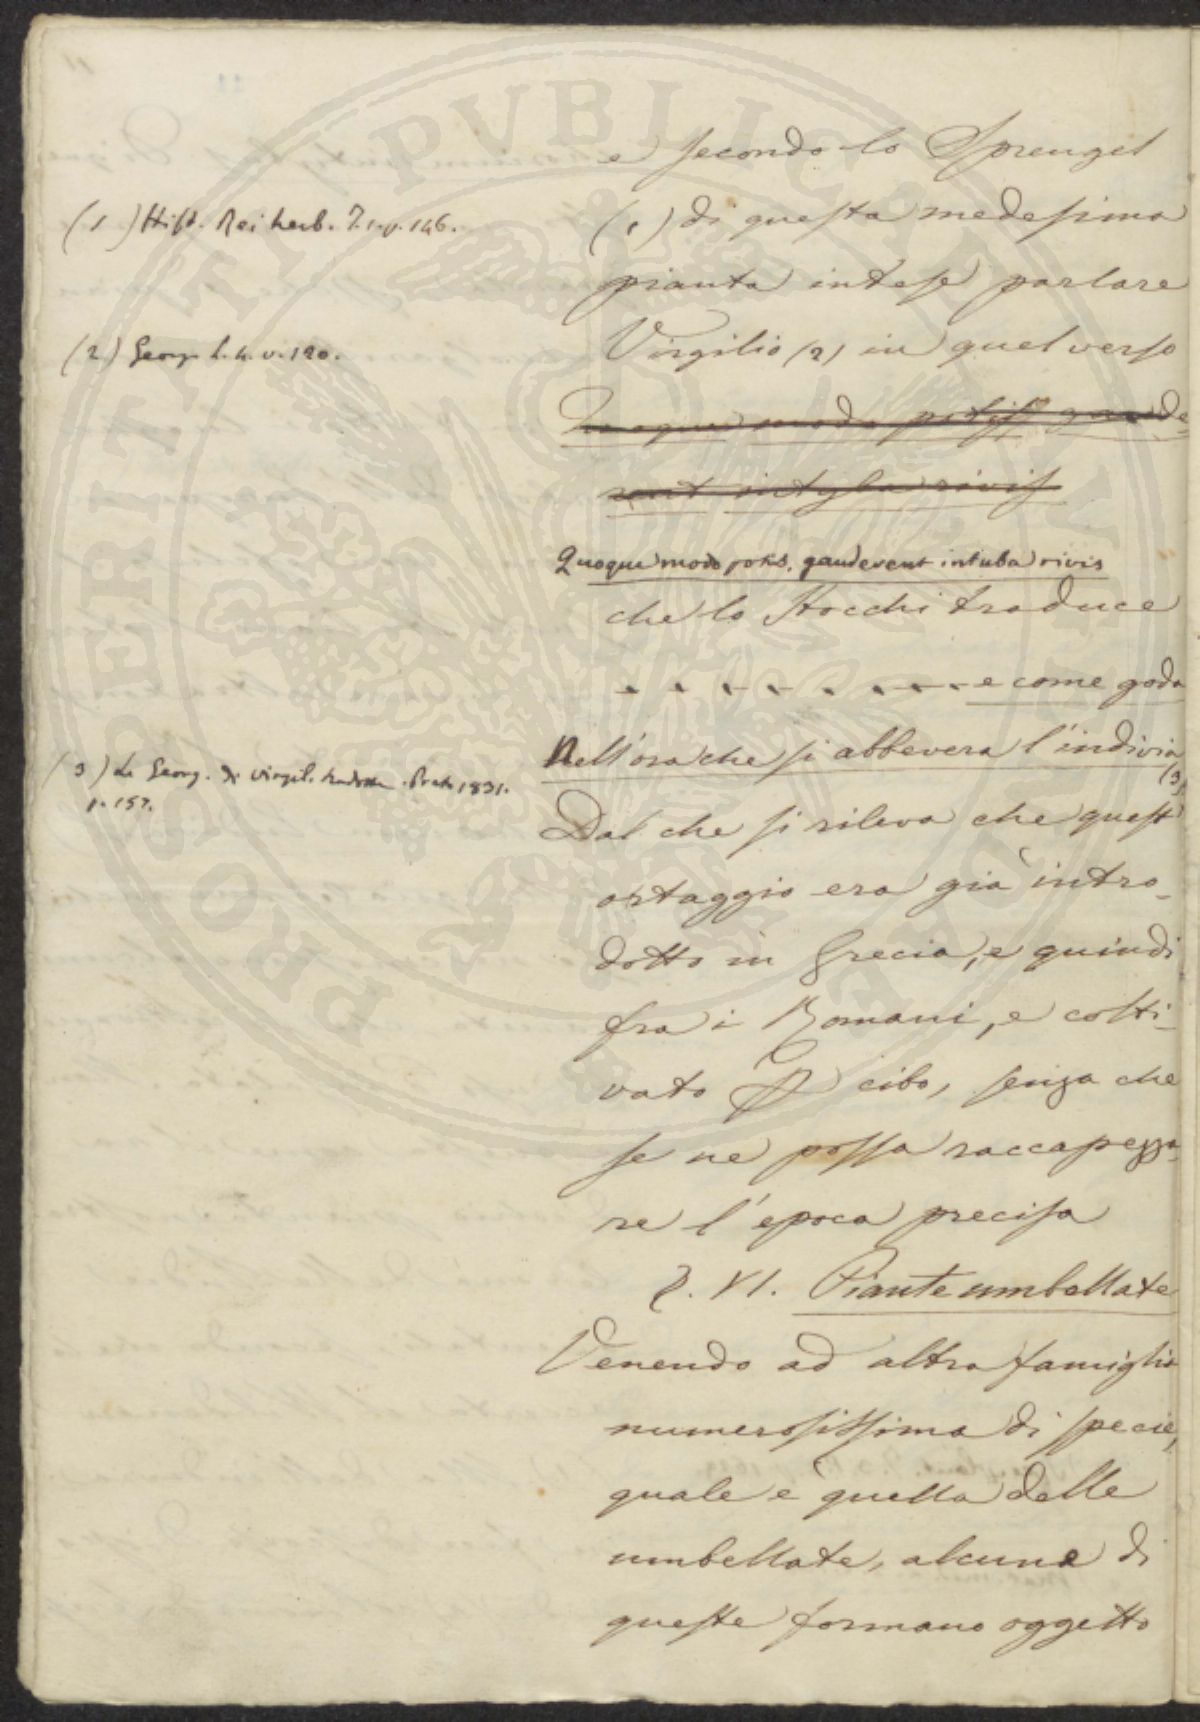 e secondo lo Sprengel
(1) Hist. Rei herb. T. 1. p. 146.
(1) di questa medesima
pianta intese parlare
(2) Georg. l. 4. v. 120.
Virgilio (2) in quel verso
Quoque modo potis gaude-
rent intyba rivis
Quoque modo potis gauderent intuba rivis
che lo Stocchi traduce
. . . . . . . . . . e come goda
Nell'ora che si abbevera l'indivia
(3)
(3) Le Georg. di Virgil. tradotte. Prato 1831.
p. 157.
Dal che si rileva che quest'
ortaggio era già intro-
dotto in Grecia, e quindi
fra i Romani, e colti-
vato p cibo, senza che
se ne possa raccapezza-
re l'epoca precisa
§. VI. Piante umbellate
Venendo ad altra famiglia
numerosissima di specie,
quale è quella delle
umbellate, alcune di
queste formano oggetto
PROSPERITATI PVBLICAE AVGENDAE